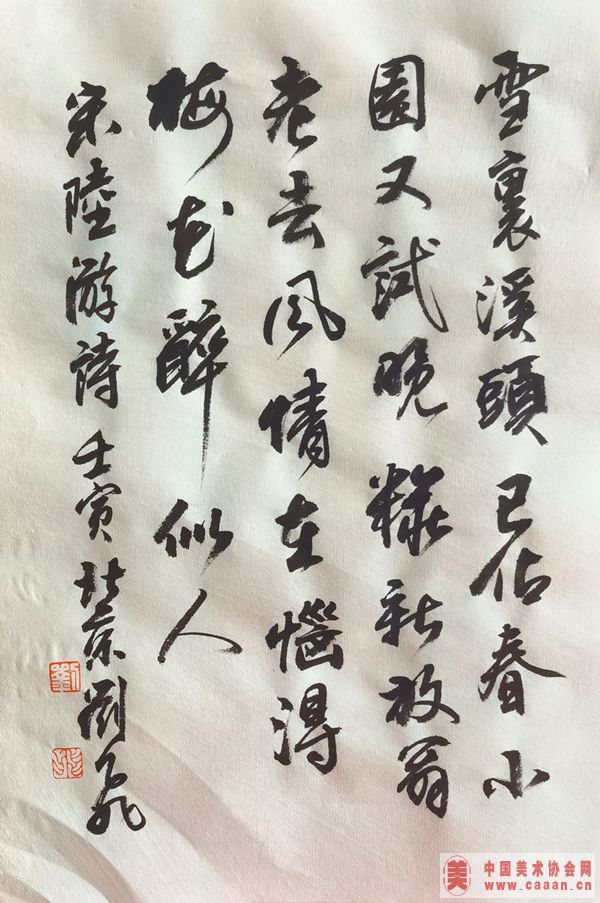 雪裏溪頭已佔春小
園又試晚糚新放翁
老去風情在惱得
梅花醉似人
宋陸游詩壬寅北京劉
劉
中国美术协会网
www.caaan.cn
美